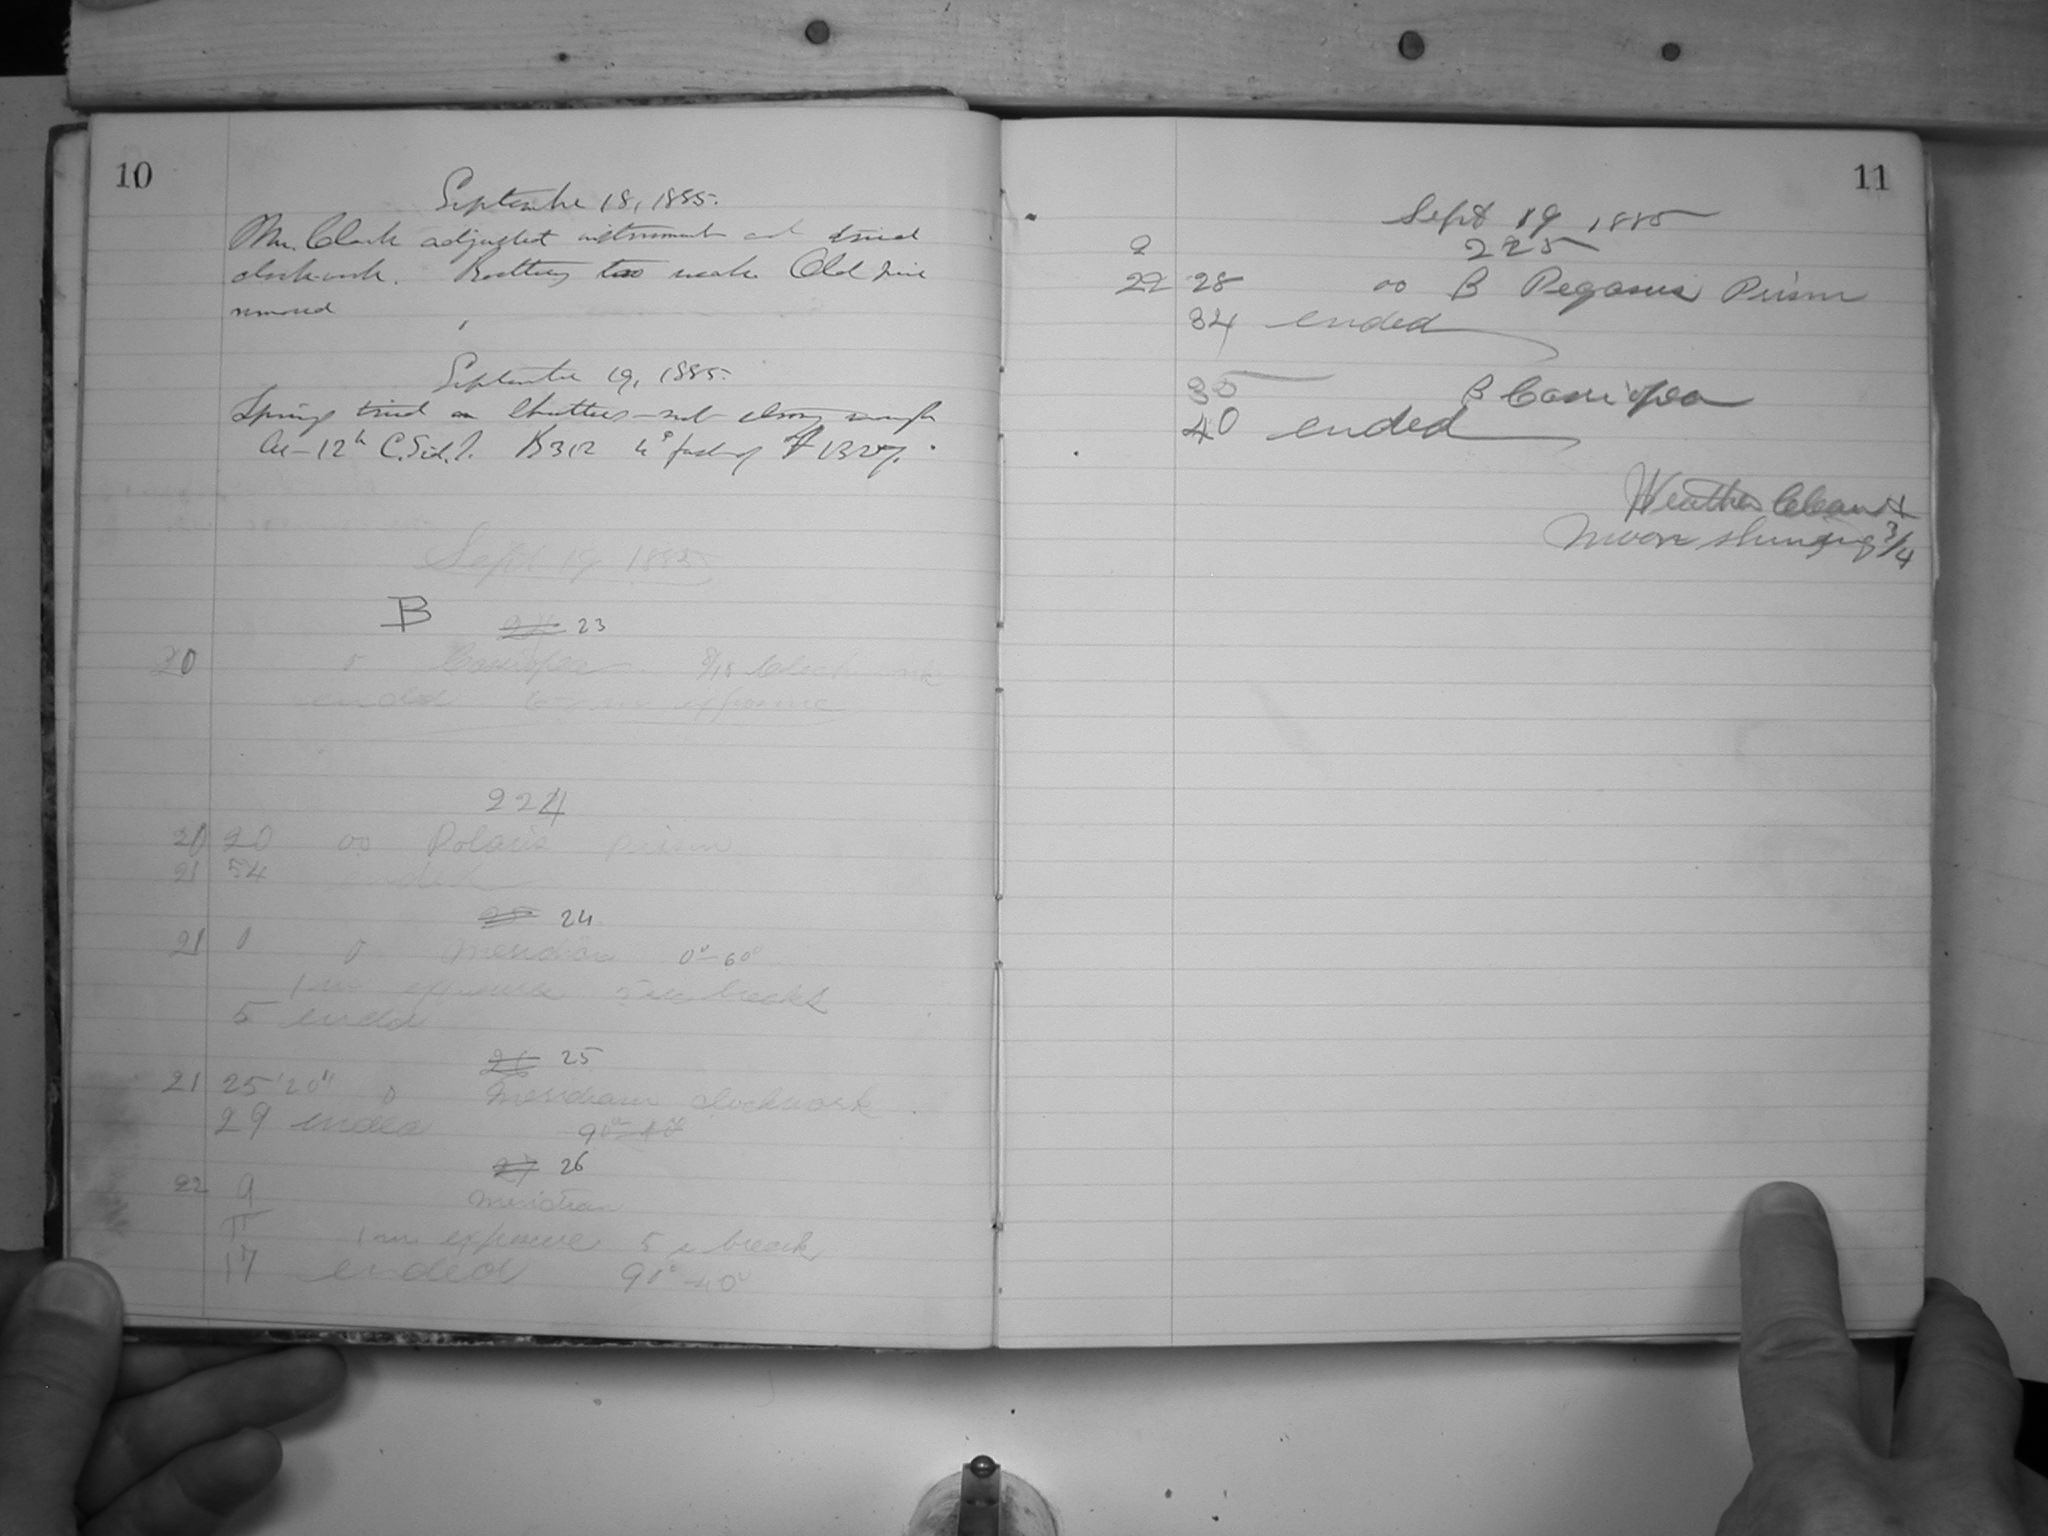 10
September 18, 1885.
Mr. Clark adjusted instrument and tried
clockwork. Battery too weak. Old
removed
September 19, 1885.
Spring tried on shutter—not strong enough
At 12h C.Sid.T. fast of
Sept 19 1885
B
23
20 0 Cassiopea clockwork
ended exposure
224
20 20 oo Polaris prism
21 54 ended
24
21 0 0 Meridian 0°-60°
1 m exposure 5 sec breaks
5 ended
25
21 25'20" 0 Meridian clockwork
29 ended
27 26
22 9 Meridian
11 1 m exposure 5 s break
17 ended 90°-40°
11
Sept 19 1885
225
22 28 oo B Pegasus Prism
34 ended
B Cassiopea
40 ended
Weather Clear &
Moon shining 3/4